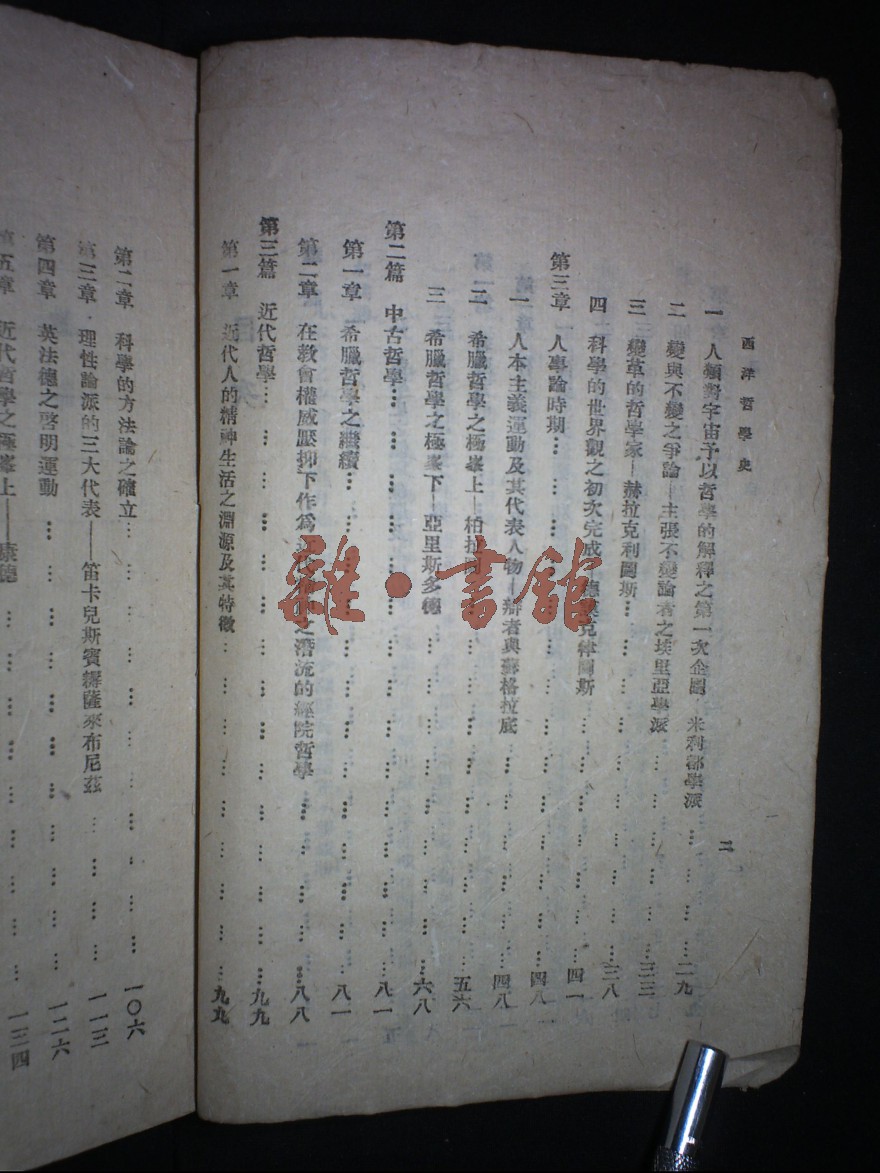 西洋哲學史
二
一 人類對宇宙予以哲學的解釋之第一次企圖—米利都學派………二九
二 變與不變之爭論—主張不變論者之埃里亞學派………三三
三 變革的哲學家—赫拉克利圖斯………三八
四 科學的世界觀之初次完成—德謨克律圖斯………四一
第三章 人事論時期………四八
一 人本主義運動及其代表人物—辯者與蘇格拉底………四八
二 希臘哲學之極峯上—柏拉圖………五六
三 希臘哲學之極峯下—亞里斯多德………六八
第二篇 中古哲學………八一
第一章 希臘哲學之繼續………八一
第二章 在教會權威壓抑下作為近代 之潛流的經院哲學………八八
第三篇 近代哲學………九九
第一章 近代人的精神生活之淵源及其特徵………九九
第二章 科學的方法論之確立………一〇六
第三章 理性論派的三大代表——笛卡兒斯賓諾薩來布尼茲………一一三
第四章 英法德之啓明運動………一二六
第五章 近代哲學之極峯上——康德………一三四
雜·書館